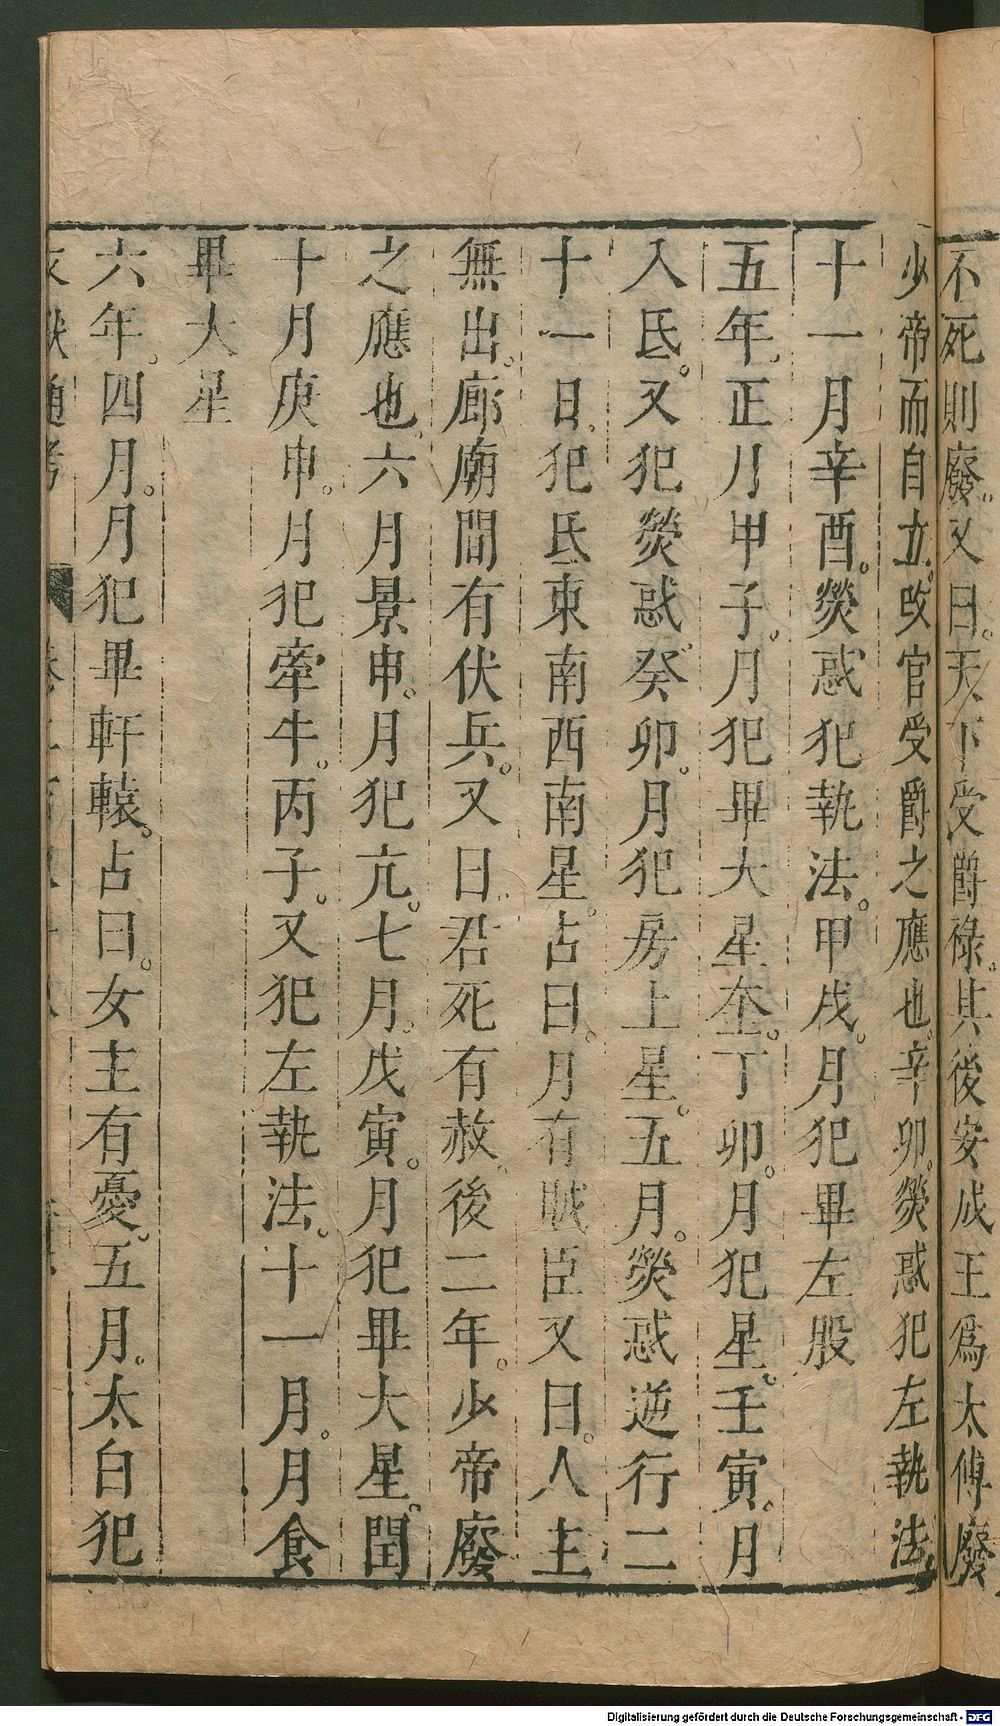 不死則廢。又曰。天下受爵祿。其後安成王爲太傅廢
少帝而自立。改官受爵之應也。辛卯。熒惑犯左執法
十一月辛酉。熒惑犯執法。甲戌。月犯畢左股
五年。正月甲子。月犯畢大星。丁卯。月犯星。壬寅。月
入氐。又犯熒惑。癸卯。月犯房上星。五月。熒惑逆行二
十一日。犯氐東南西南星。占曰。月有賊臣又曰。人主
無出。廊廟間有伏兵。又曰。君死有赦。後二年。少帝廢
之應也。六月景申。月犯亢。七月。戊寅。月犯畢大星。閏
十月庚申。月犯牽牛。丙子。又犯左執法。十一月。月食
畢大星
六年。四月。月犯畢軒轅。占曰。女主有憂。五月。太白犯
Digitalisierung gefördert durch die Deutsche Forschungsgemeinschaft - DFG